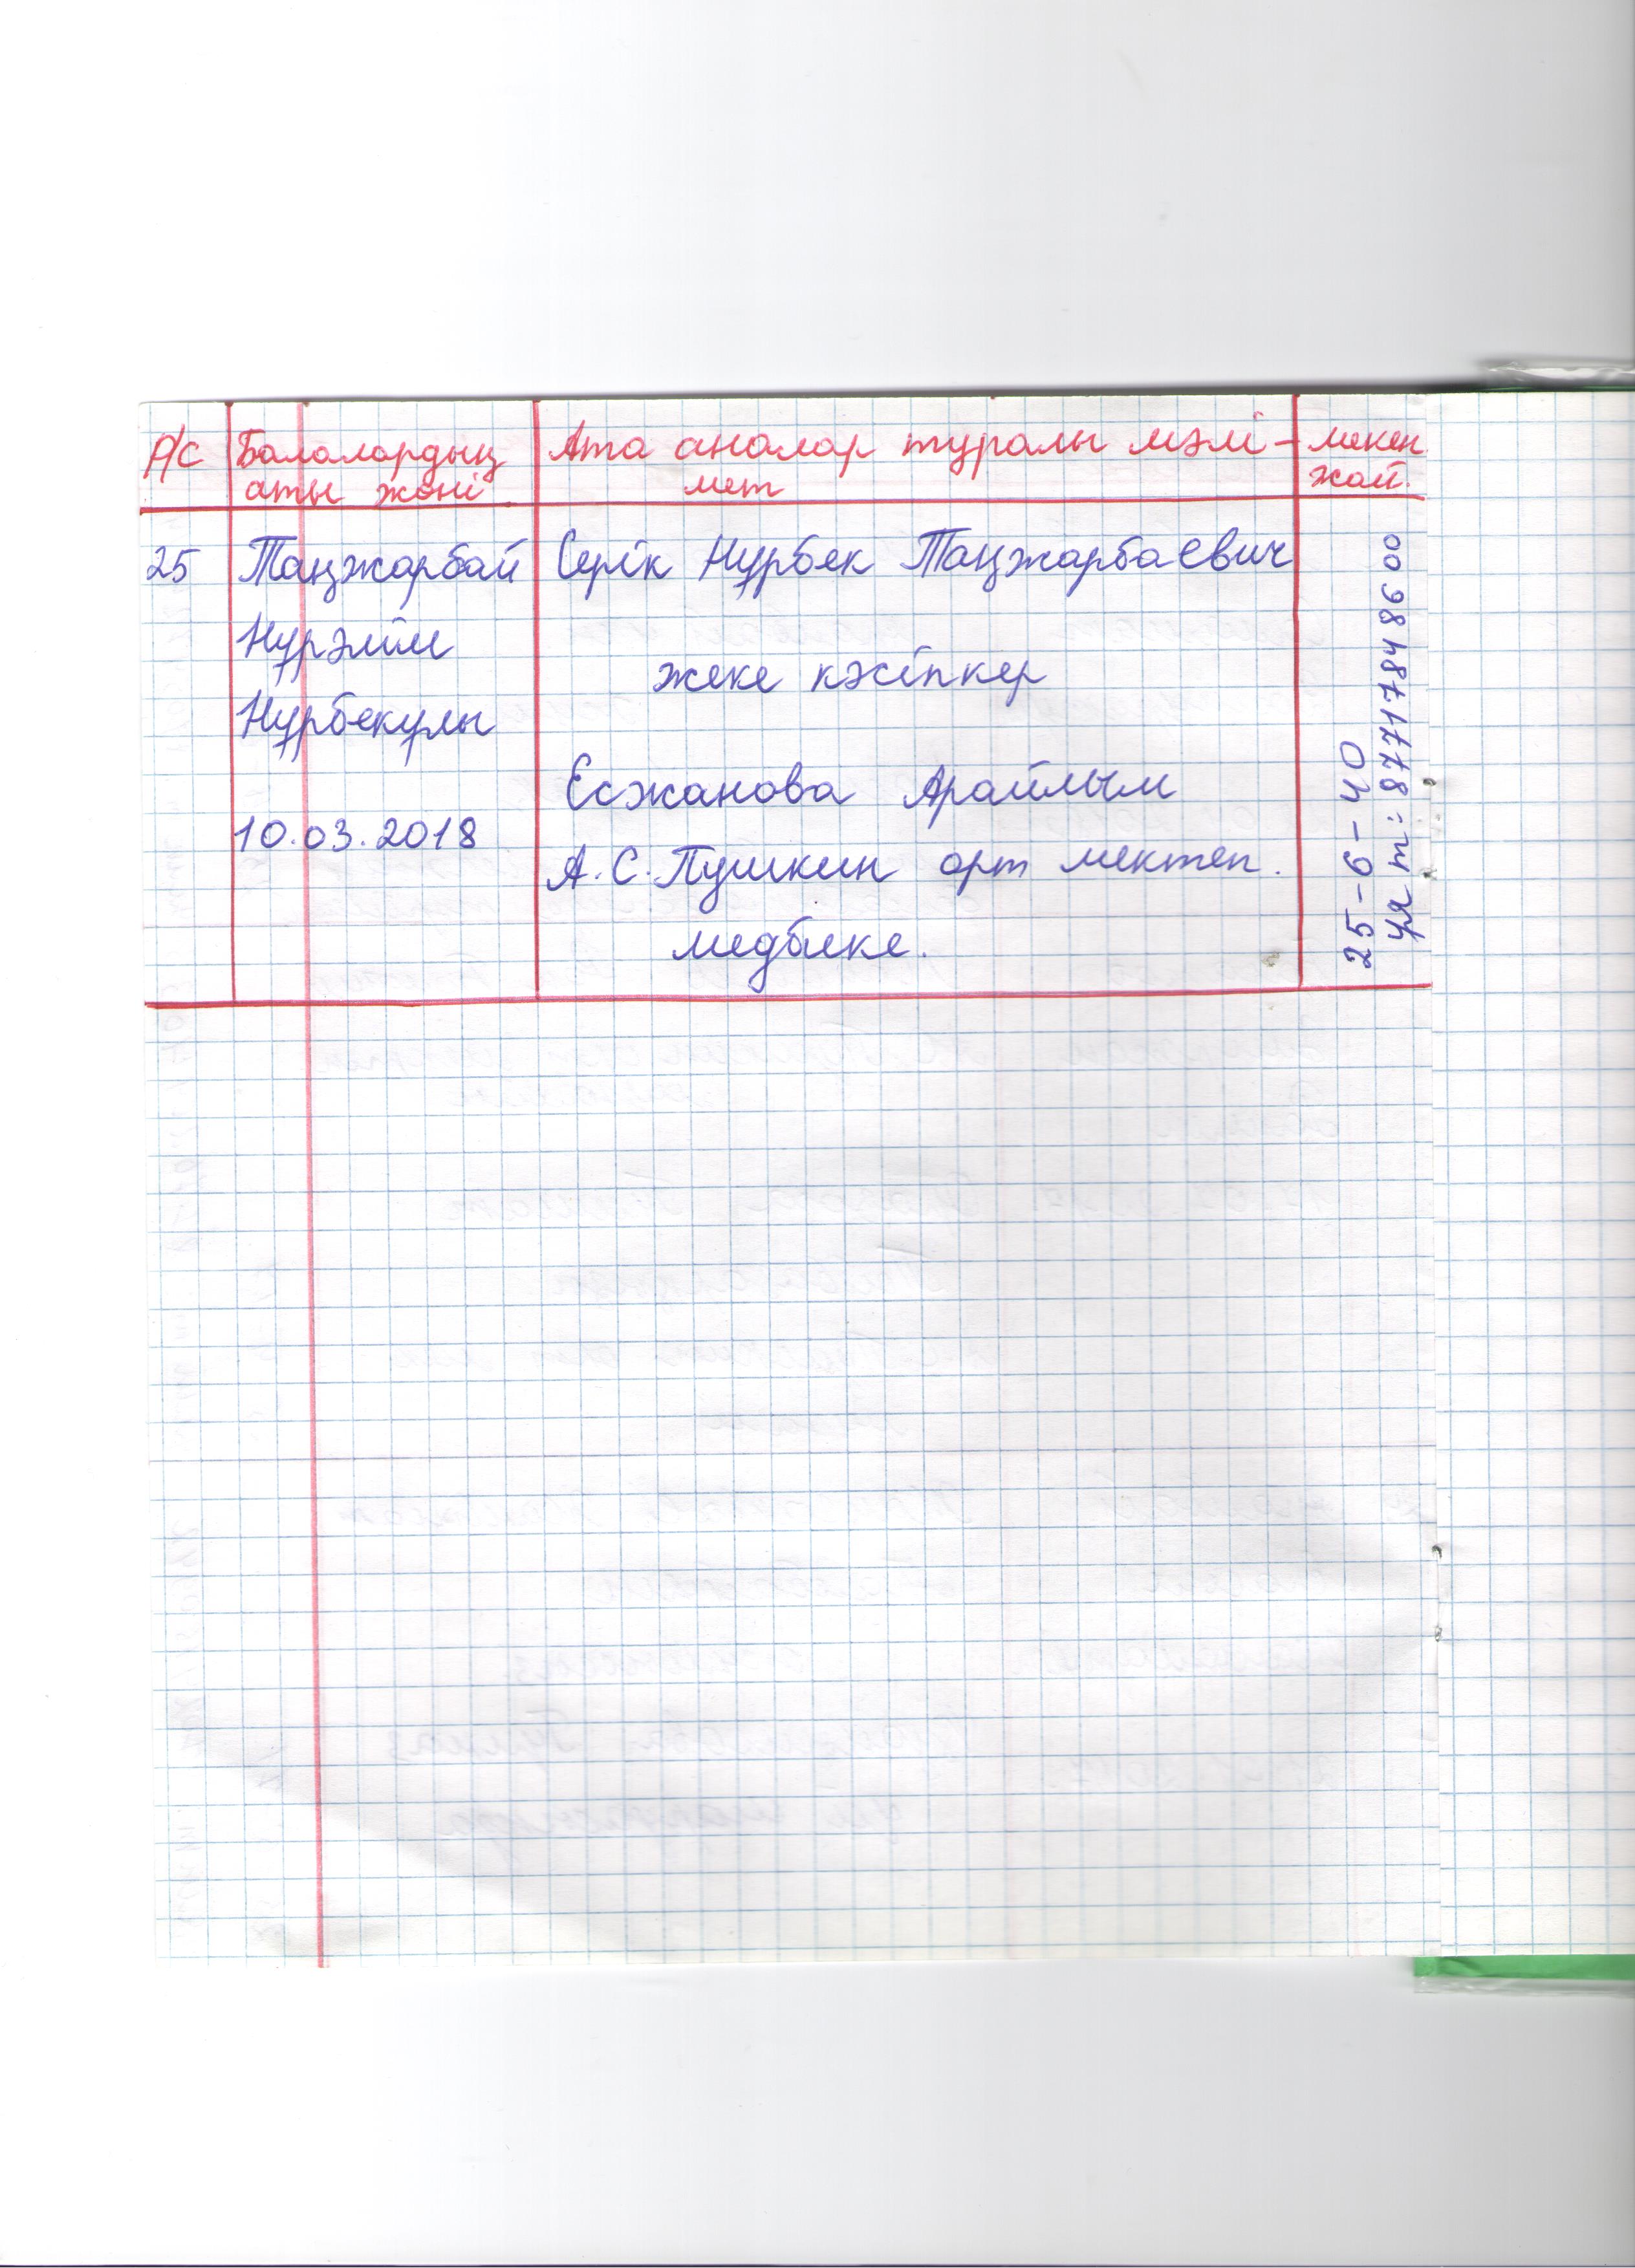 Р/С Балалардың Ата аналар туралы мәлі- мекен
аты жөні мет жай.
25 Таңжарбай Серік Нұрбек Таңжарбаевич
Нұрәлім
жеке кәсіпкер
Нұрбекұлы
Есжанова Арайлым
10.03.2018
А.С.Пушкин орт мектеп.
медбике.
25-6-40
ұя т: 87717848600